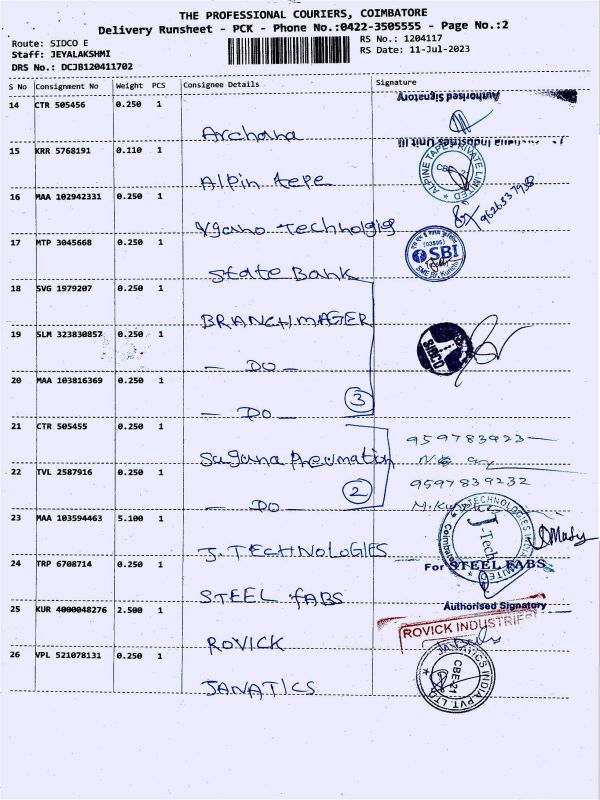 THE PROFESSIONAL COURIERS, COIMBATORE
Delivery Runsheet - PCK - Phone No.:0422-3505555 - Page No.:2
Route: SIDCO E
RS No.: 1204117
Staff: JEYALAKSHMI
RS Date: 11-Jul-2023
DRS No.: DCJB120411702
S No Consignment No Weight PCS Consignee Details Signature
14 CTR 505456 0.250 1 Authorised Signatory
Archana
15 KRR 5768191 0.110 1 Industries Unit III
Alpin tepe
ALPINE TAPE PRIVATE LIMITED
16 MAA 102942331 0.250 1
Technolgies
17 MTP 3045668 0.250 1
State Bank
(03895)
SBI
SME BR, Kurichi
18 SVG 1979207 0.250 1
BRANCH MAGER
19 SLM 323830857 0.250 1
- DO -
SIDCO
20 MAA 103816369 0.250 1
- DO - 3
21 CTR 505455 0.250 1
Sugana Pneumation
22 TVL 2587916 0.250 1
9597839232
- DO - 2
23 MAA 103594463 5.100 1
J. TECHNOLOGIES
J-Tech
TECHNOLOGIES INDIA LIMITED
Coimbatore
24 TRP 6708714 0.250 1 For STEEL FABS
STEEL FABS
Authorised Signatory
25 KUR 4000048276 2.500 1
ROVICK INDUSTRIES
ROVICK
26 VPL 521078131 0.250 1
JANATICS
JANATICS INDIA PVT. LTD
CBE-21